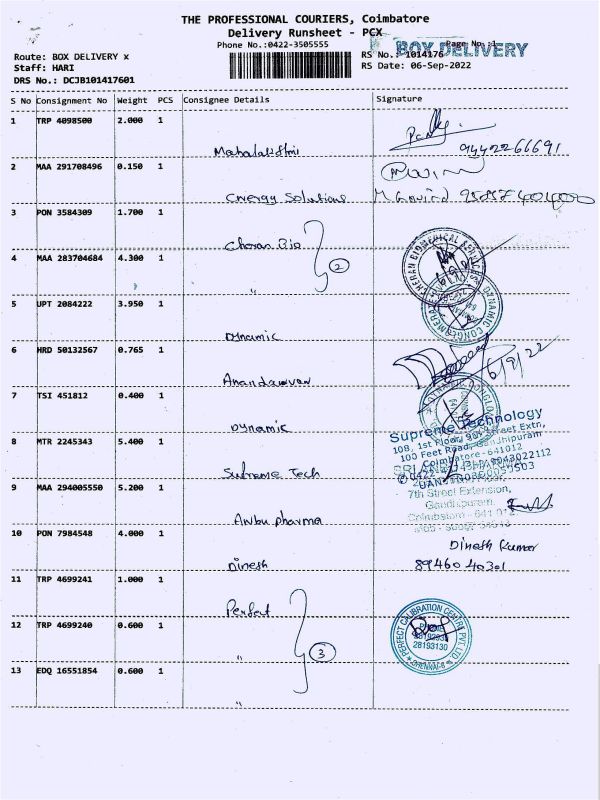 THE PROFESSIONAL COURIERS, Coimbatore
Delivery Runsheet - PCX
Phone No.:0422-3505555
Page No :1
BOX DELIVERY
Route: BOX DELIVERY x
RS No.: 1014176
Staff: HARI
RS Date: 06-Sep-2022
DRS No.: DCJB101417601
S No Consignment No Weight PCS Consignee Details Signature
1 TRP 4098500 2.000 1
Mahalakshmi 9442266691
2 MAA 291708496 0.150 1
Energy Solutions M Govind
3 PON 3584309 1.700 1
Cheran Bio
2
4 MAA 283704684 4.300 1
"
5 UPT 2084222 3.950 1
Dynamic
6 HRD 50132567 0.765 1
6/9/22
7 TSI 451812 0.400 1
Dynamic
Supreme Technology
108, 1st Floor, 9th Street Extn,
100 Feet Road, Gandhipuram
Coimbatore - 641012
8 MTR 2245343 5.400 1
Supreme Tech
9 MAA 294005550 5.200 1
7th Street Extension,
Gandhipuram,
Coimbatore - 641 012
Anbu pharma
10 PON 7984548 4.000 1
Dinesh Kumar
Dinesh 8946040301
11 TRP 4699241 1.000 1
Perfect
12 TRP 4699240 0.600 1
PERFECT CALIBRATION CENTRE PVT LTD
28193130
CHENNAI-6
" 3
13 EDQ 16551854 0.600 1
"